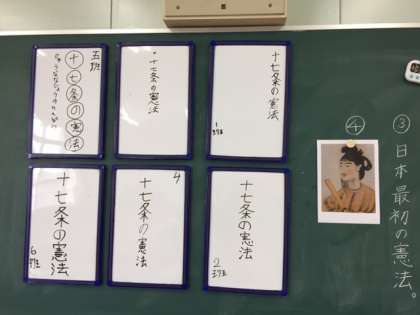 ③日本最初の憲法。
④
十七条の憲法
1班
十七条の憲法
五班
十七条の憲法
じゅうななじょうのけんぽう
十七条の憲法
2班
4
十七条の憲法
十七条の憲法
6班